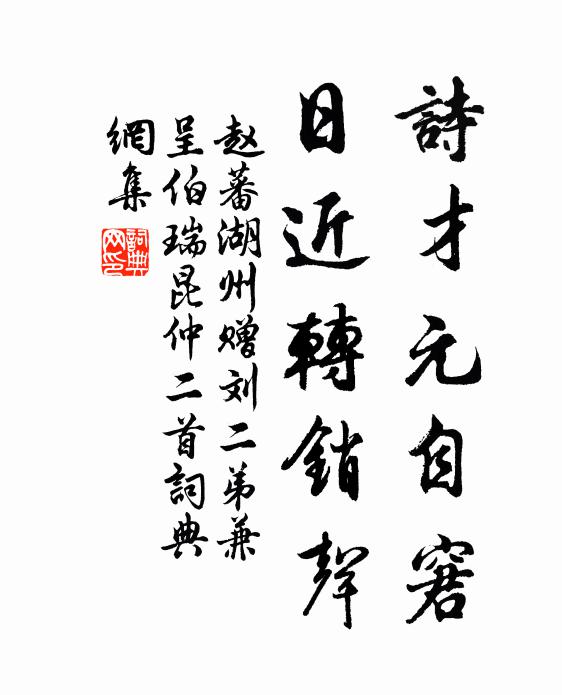 詩才元自窘
日近轉銷聲
赵蕃湖州赠刘二弟兼
呈伯瑞昆仲二首詞典
網集
詞典
网印